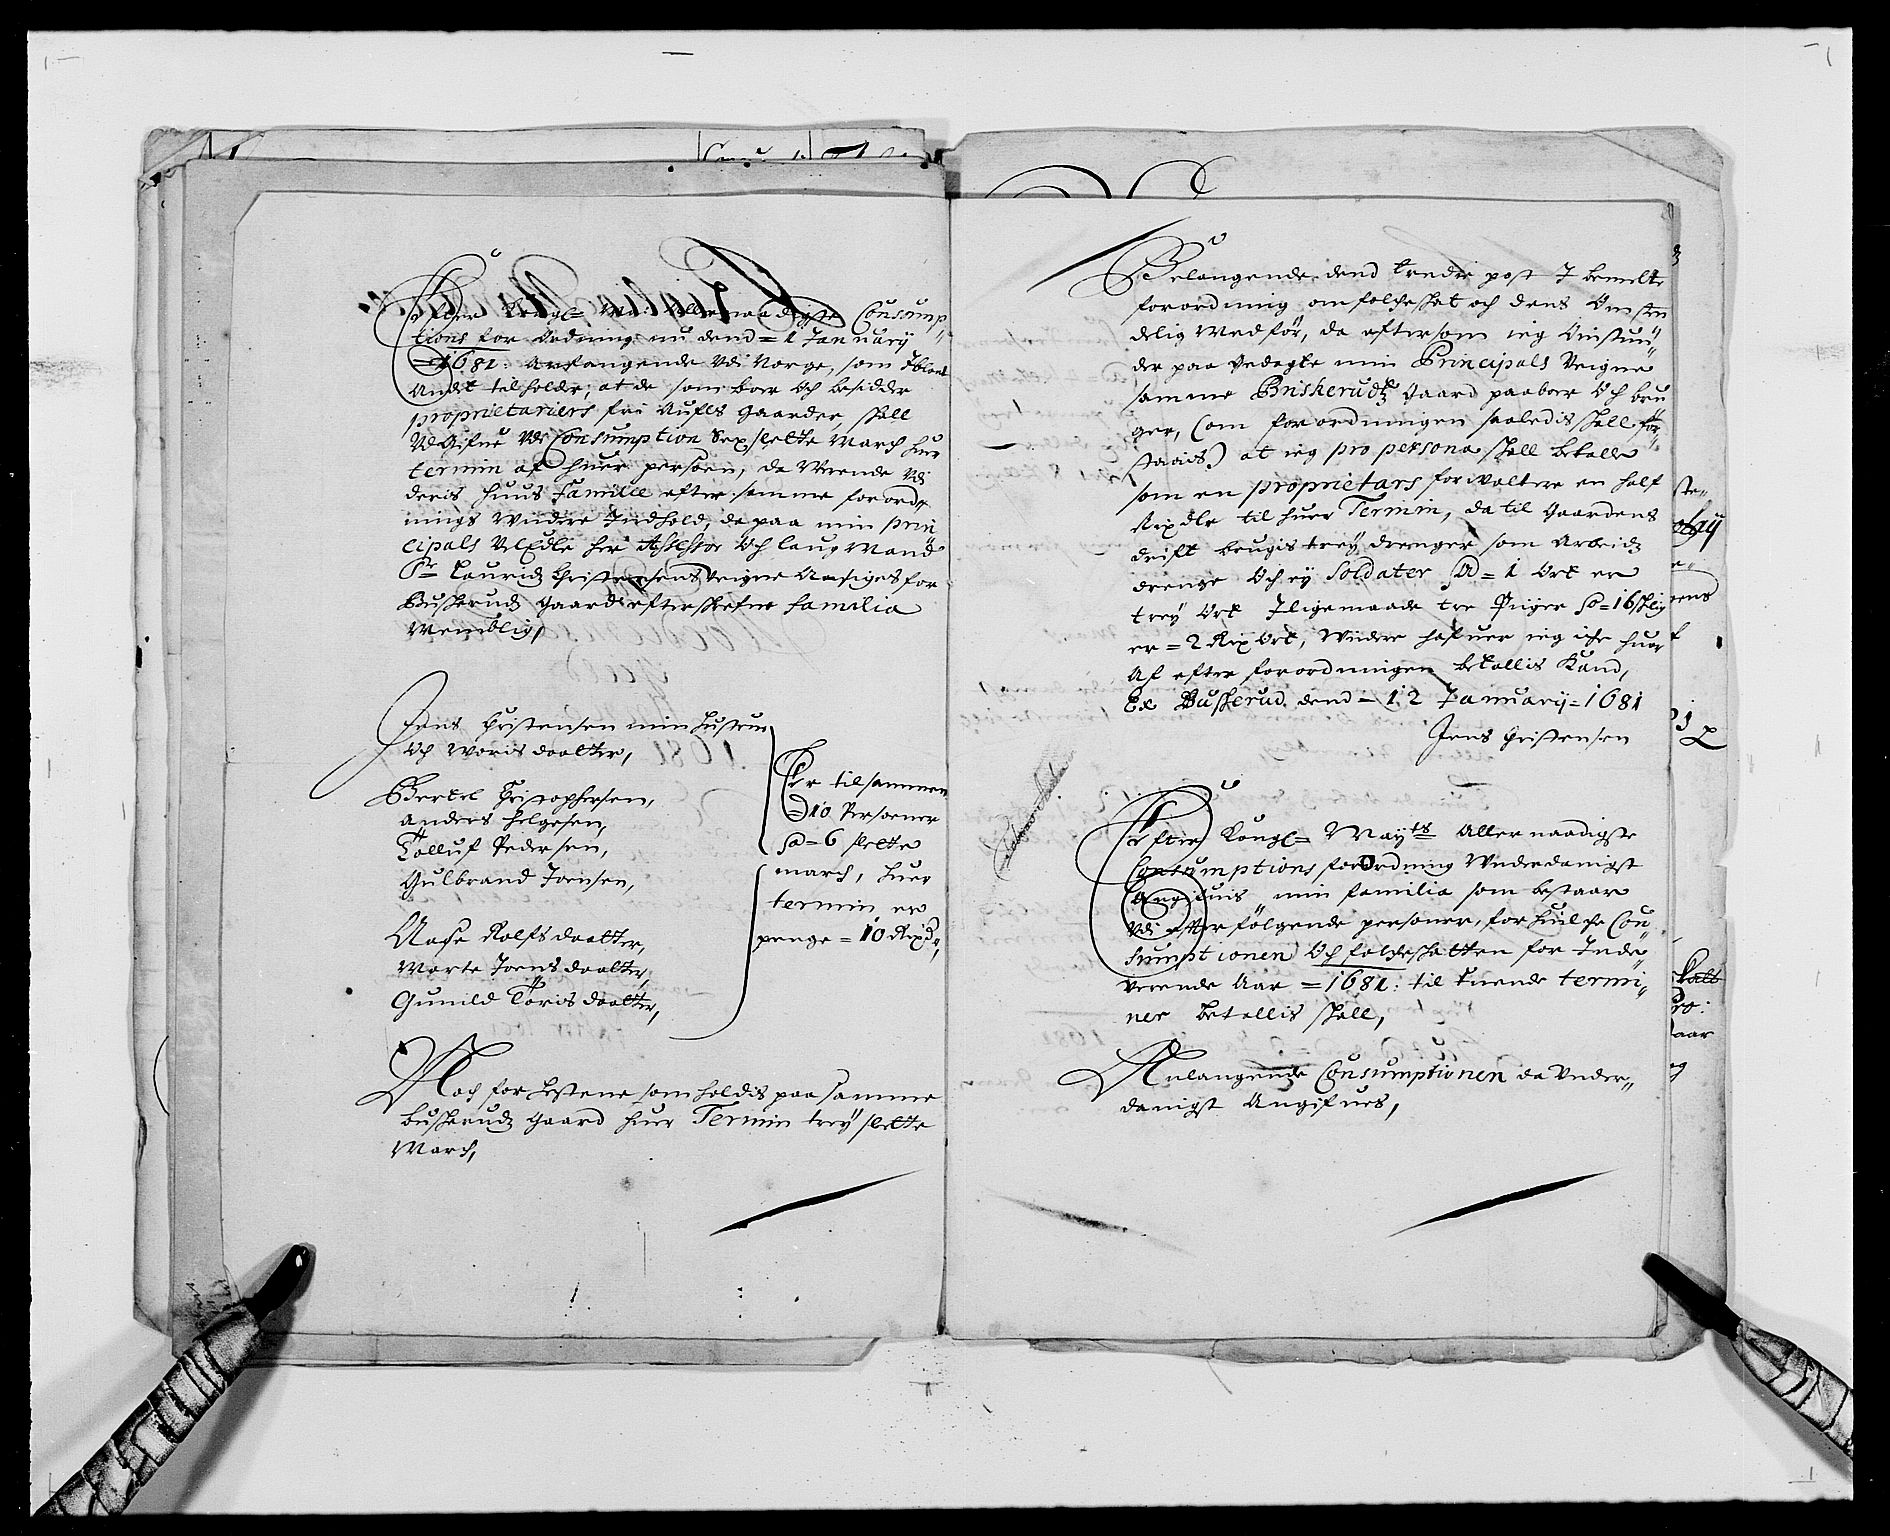 Efter Kongl= Ma: Allernaadigste Consump
tions for Ordning nu dend = 1 January
1681: Anlangende Udi Norge, som Iblant
Andet tilholder, at de som boer Och besidder
proprietariers frie Aufls Gaarder, skall
UdGifue Udi Consumption Sex slette March huer
termin af huer persoen, da Werende Udi
deris huus Familie efter samme forord-
nings Widere Indhold, da paa min prin
cipals Vel Edle her Assessor Och laug Mand
Sr Lauridz Christensens Veigne Angifues for
Buskerudz Gaard efterskrefne familia
Nemblig,
Jens Christensen min hustrue
Och Voris daatter,
Bertel Christophersen,
Anders Helgesen,
Tolluf Pedersen,
Gulbrand Joensen,
Aase Rolfs daatter,
Marte Joens daatter,
Gunild Töris daatter,
Er tilsammen
= 10 Persoener
so = 6 slette
march, huer
termin er
penge = 10 Rixdr,
Noch for hestene som holdis paa samme
buskerudz Gaard huer Termin trey slette
March,
Belangende dend tredie post I bemelte
forordning om folcheskat och dens Om sten
delig Medför, da eftersom ieg Omstun
der paa Vedagte min Principals Veigne
samme Buskerudtz Gaard paaboer Och bru
ger, (om forordningen saaledis skall for-
staais) at ieg pro persona skall betalle
som en proprietars forvaltere en half
Rixdlr til huer Termin, da til Gaardens
drift brugis trey drenger som Arbeidz
drenge Och ey Soldater så = 1 Ort er
trey Ort Iligemaade tre Piiger so = 16 skl
er = 2 Rix Ort, Widere hafuer ieg iche huor
Af efter forordningen betallis Kand,
Ex Buskerud dend = 12 January = 1681
Jens Christensen
Efter Kongl= Mayts Aller naadigste
Consumptions forOrdning Vnderdanigst
Angifuis min familia som bestaar
Vdi efter fölgende personer, for huilche Con
sumptionen Och folcheskatten for Inde
verende Aar = 1681: til tuende termi
ner betallis skall,
Anlangende Consumptionen da Vnder
danigst Angifues,